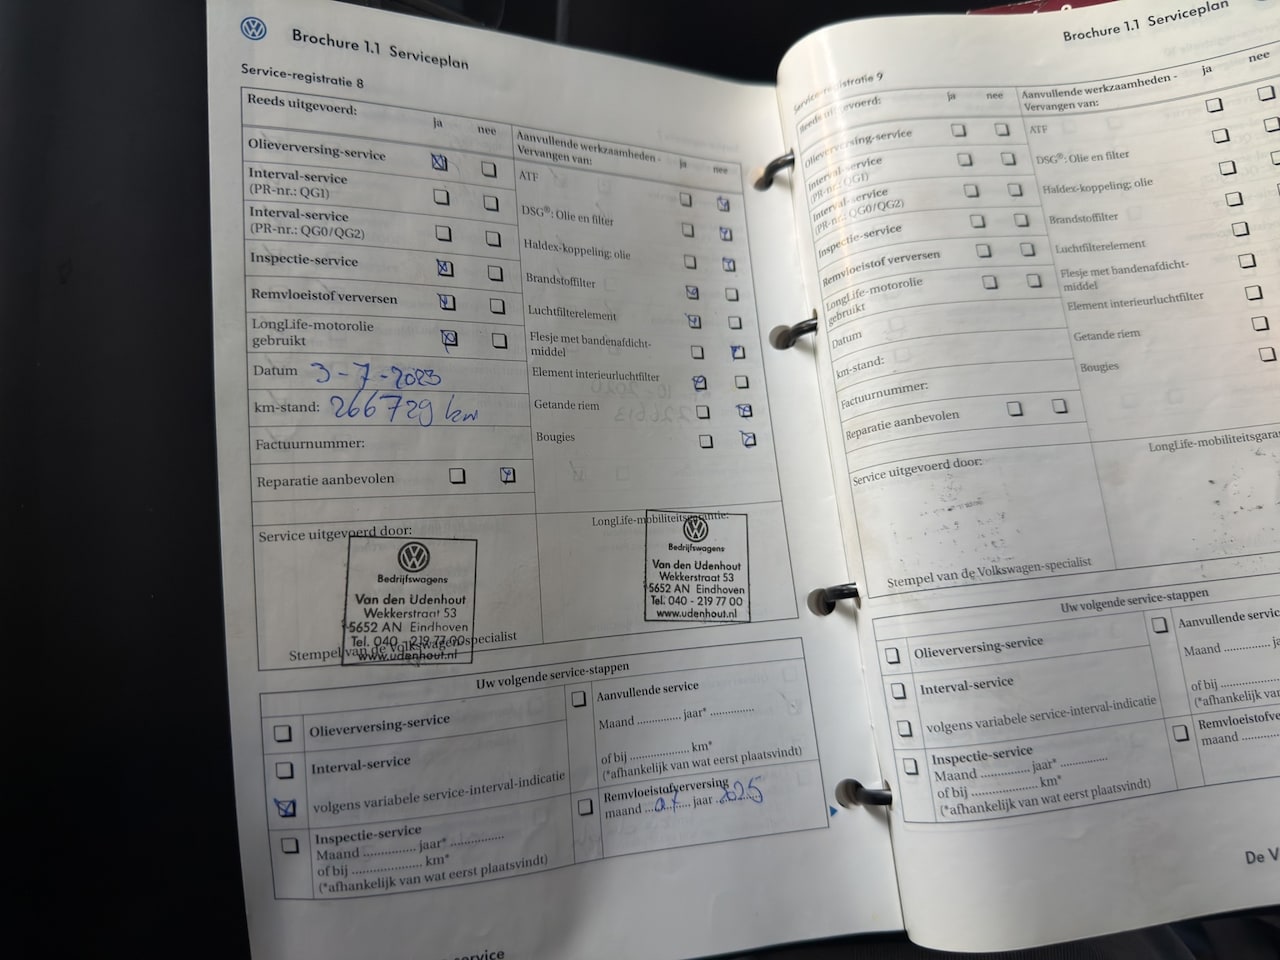 Brochure 1.1 Serviceplan
Service-registratie 8
Reeds uitgevoerd:
ja nee
Olieverversing-service
Interval-service
(PR-nr.: QG1)
Interval-service
(PR-nr.: QG0/QG2)
Inspectie-service
Remvloeistof verversen
LongLife-motorolie
gebruikt
Datum 3-7-2023
km-stand: 266729 km
Factuurnummer:
Reparatie aanbevolen
Aanvullende werkzaamheden -
Vervangen van:
ja nee
ATF
DSG®: Olie en filter
Haldex-koppeling: olie
Brandstoffilter
Luchtfilterelement
Flesje met bandenafdicht-
middel
Element interieurluchtfilter
Getande riem
Bougies
Service uitgevoerd door:
Bedrijfswagens
Van den Udenhout
Wekkerstraat 53
5652 AN Eindhoven
Tel. 040 - 219 77 00
www.udenhout.nl
Stempel van de Volkswagen-specialist
LongLife-mobiliteitsgarantie:
Bedrijfswagens
Van den Udenhout
Wekkerstraat 53
5652 AN Eindhoven
Tel. 040 - 219 77 00
www.udenhout.nl
Uw volgende service-stappen
Olieverversing-service
Interval-service
volgens variabele service-interval-indicatie
Inspectie-service
Maand .............. jaar* ..............
of bij .................... km*
(*afhankelijk van wat eerst plaatsvindt)
Aanvullende service
Maand ............ jaar* ............
of bij .................. km*
(*afhankelijk van wat eerst plaatsvindt)
Remvloeistofverversing
maand 07 jaar 2025
service
Brochure 1.1 Serviceplan
Service-registratie 9
Reeds uitgevoerd:
ja nee
Olieverversing-service
Interval-service
(PR-nr.: QG1)
Interval-service
(PR-nr.: QG0/QG2)
Inspectie-service
Remvloeistof verversen
LongLife-motorolie
gebruikt
Datum
km-stand:
Factuurnummer:
Reparatie aanbevolen
Aanvullende werkzaamheden -
Vervangen van:
ja nee
ATF
DSG®: Olie en filter
Haldex-koppeling: olie
Brandstoffilter
Luchtfilterelement
Flesje met bandenafdicht-
middel
Element interieurluchtfilter
Getande riem
Bougies
Service uitgevoerd door:
Stempel van de Volkswagen-specialist
LongLife-mobiliteitsgara
Uw volgende service-stappen
Olieverversing-service
Interval-service
volgens variabele service-interval-indicatie
Inspectie-service
Maand .............. jaar* ..............
of bij .................... km*
(*afhankelijk van wat eerst plaatsvindt)
Aanvullende servic
Maand .............. ja
of bij ..............
(*afhankelijk van w
Remvloeistofve
maand ..........
De V